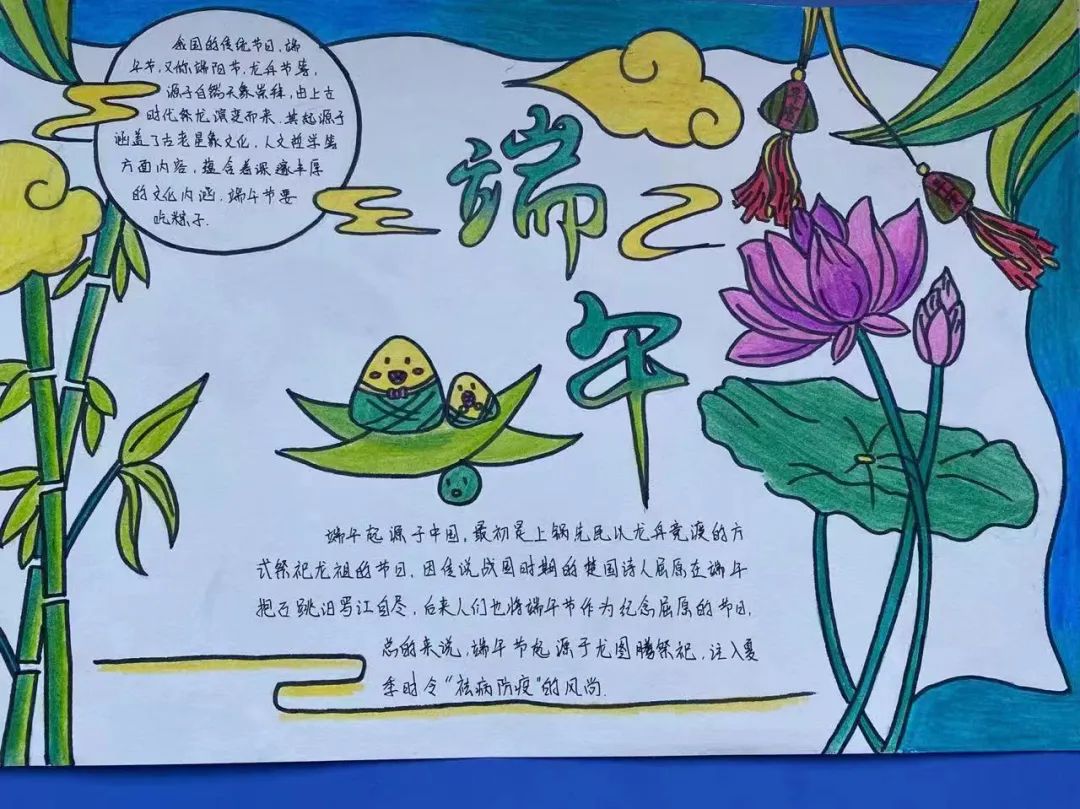 我国的传统节日，端
午节，又称端阳节，龙舟节等，
源于自然天象崇拜，由上古
时代祭龙演变而来。其起源于
涵盖了古老星象文化，人文哲学等
方面内容，蕴含着深邃丰厚
的文化内涵，端午节要
吃粽子.
端
午
端午起源于中国，最初是上锅先民以龙舟竞渡的方
式祭祀龙祖的节日，因传说战国时期的楚国诗人屈原在端午
抱石跳汨罗江自尽，后来人们也将端午节作为纪念屈原的节日，
总的来说，端午节起源于龙图腾祭祀，注入夏
季时令“祛病防疫”的风尚.